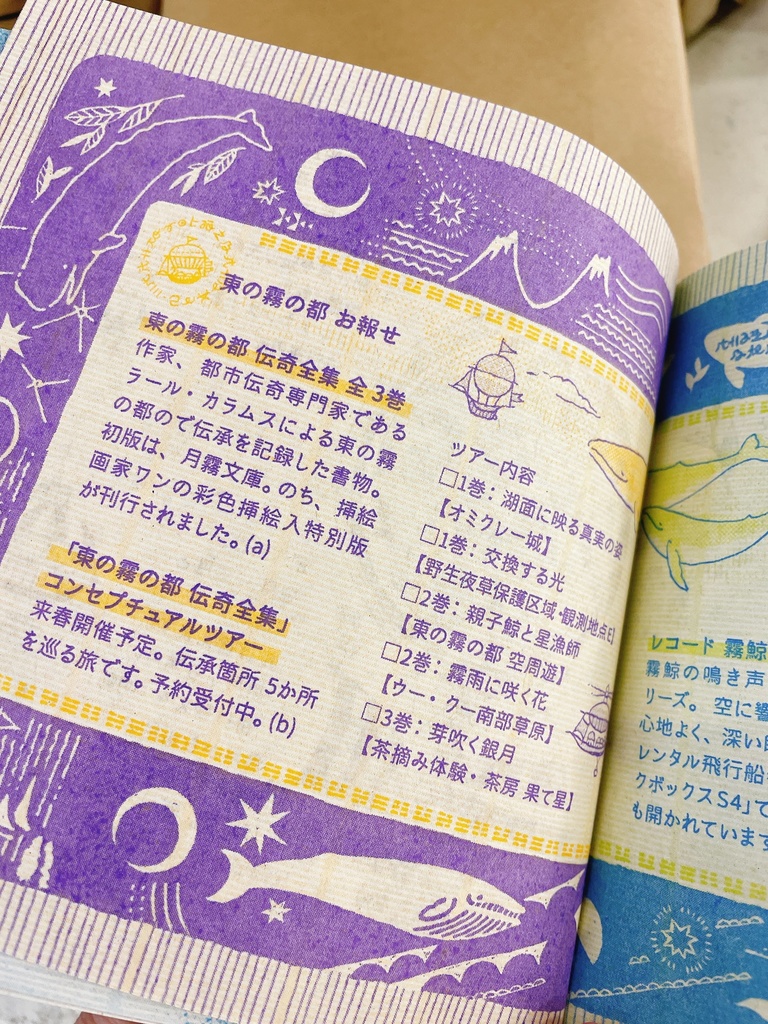 東の霧の都 お報せ
東の霧の都 伝奇全集 全3巻
作家、都市伝奇専門家である
ラール・カラムスによる東の霧
の都ので伝承を記録した書物。
初版は、月霧文庫。のち、挿絵
画家ワンの彩色挿絵入特別版
が刊行されました。(a)
「東の霧の都 伝奇全集」
コンセプチュアルツアー
来春開催予定。伝承箇所 5か所
を巡る旅です。予約受付中。(b)
ツアー内容
□1巻：湖面に映る真実の姿
【オミクレー城】
□1巻：交換する光
【野生夜草保護区域・観測地点E】
□2巻：親子鯨と星漁師
【東の霧の都 空周遊】
□2巻：霧雨に咲く花
【ウー・クー南部草原】
□3巻：芽吹く銀月
【茶摘み体験・茶房 果て星】
レコード 霧鯨
霧鯨の鳴き声
リーズ。空に響
心地よく、深い
レンタル飛行船
クボックスS4」で
も開かれています